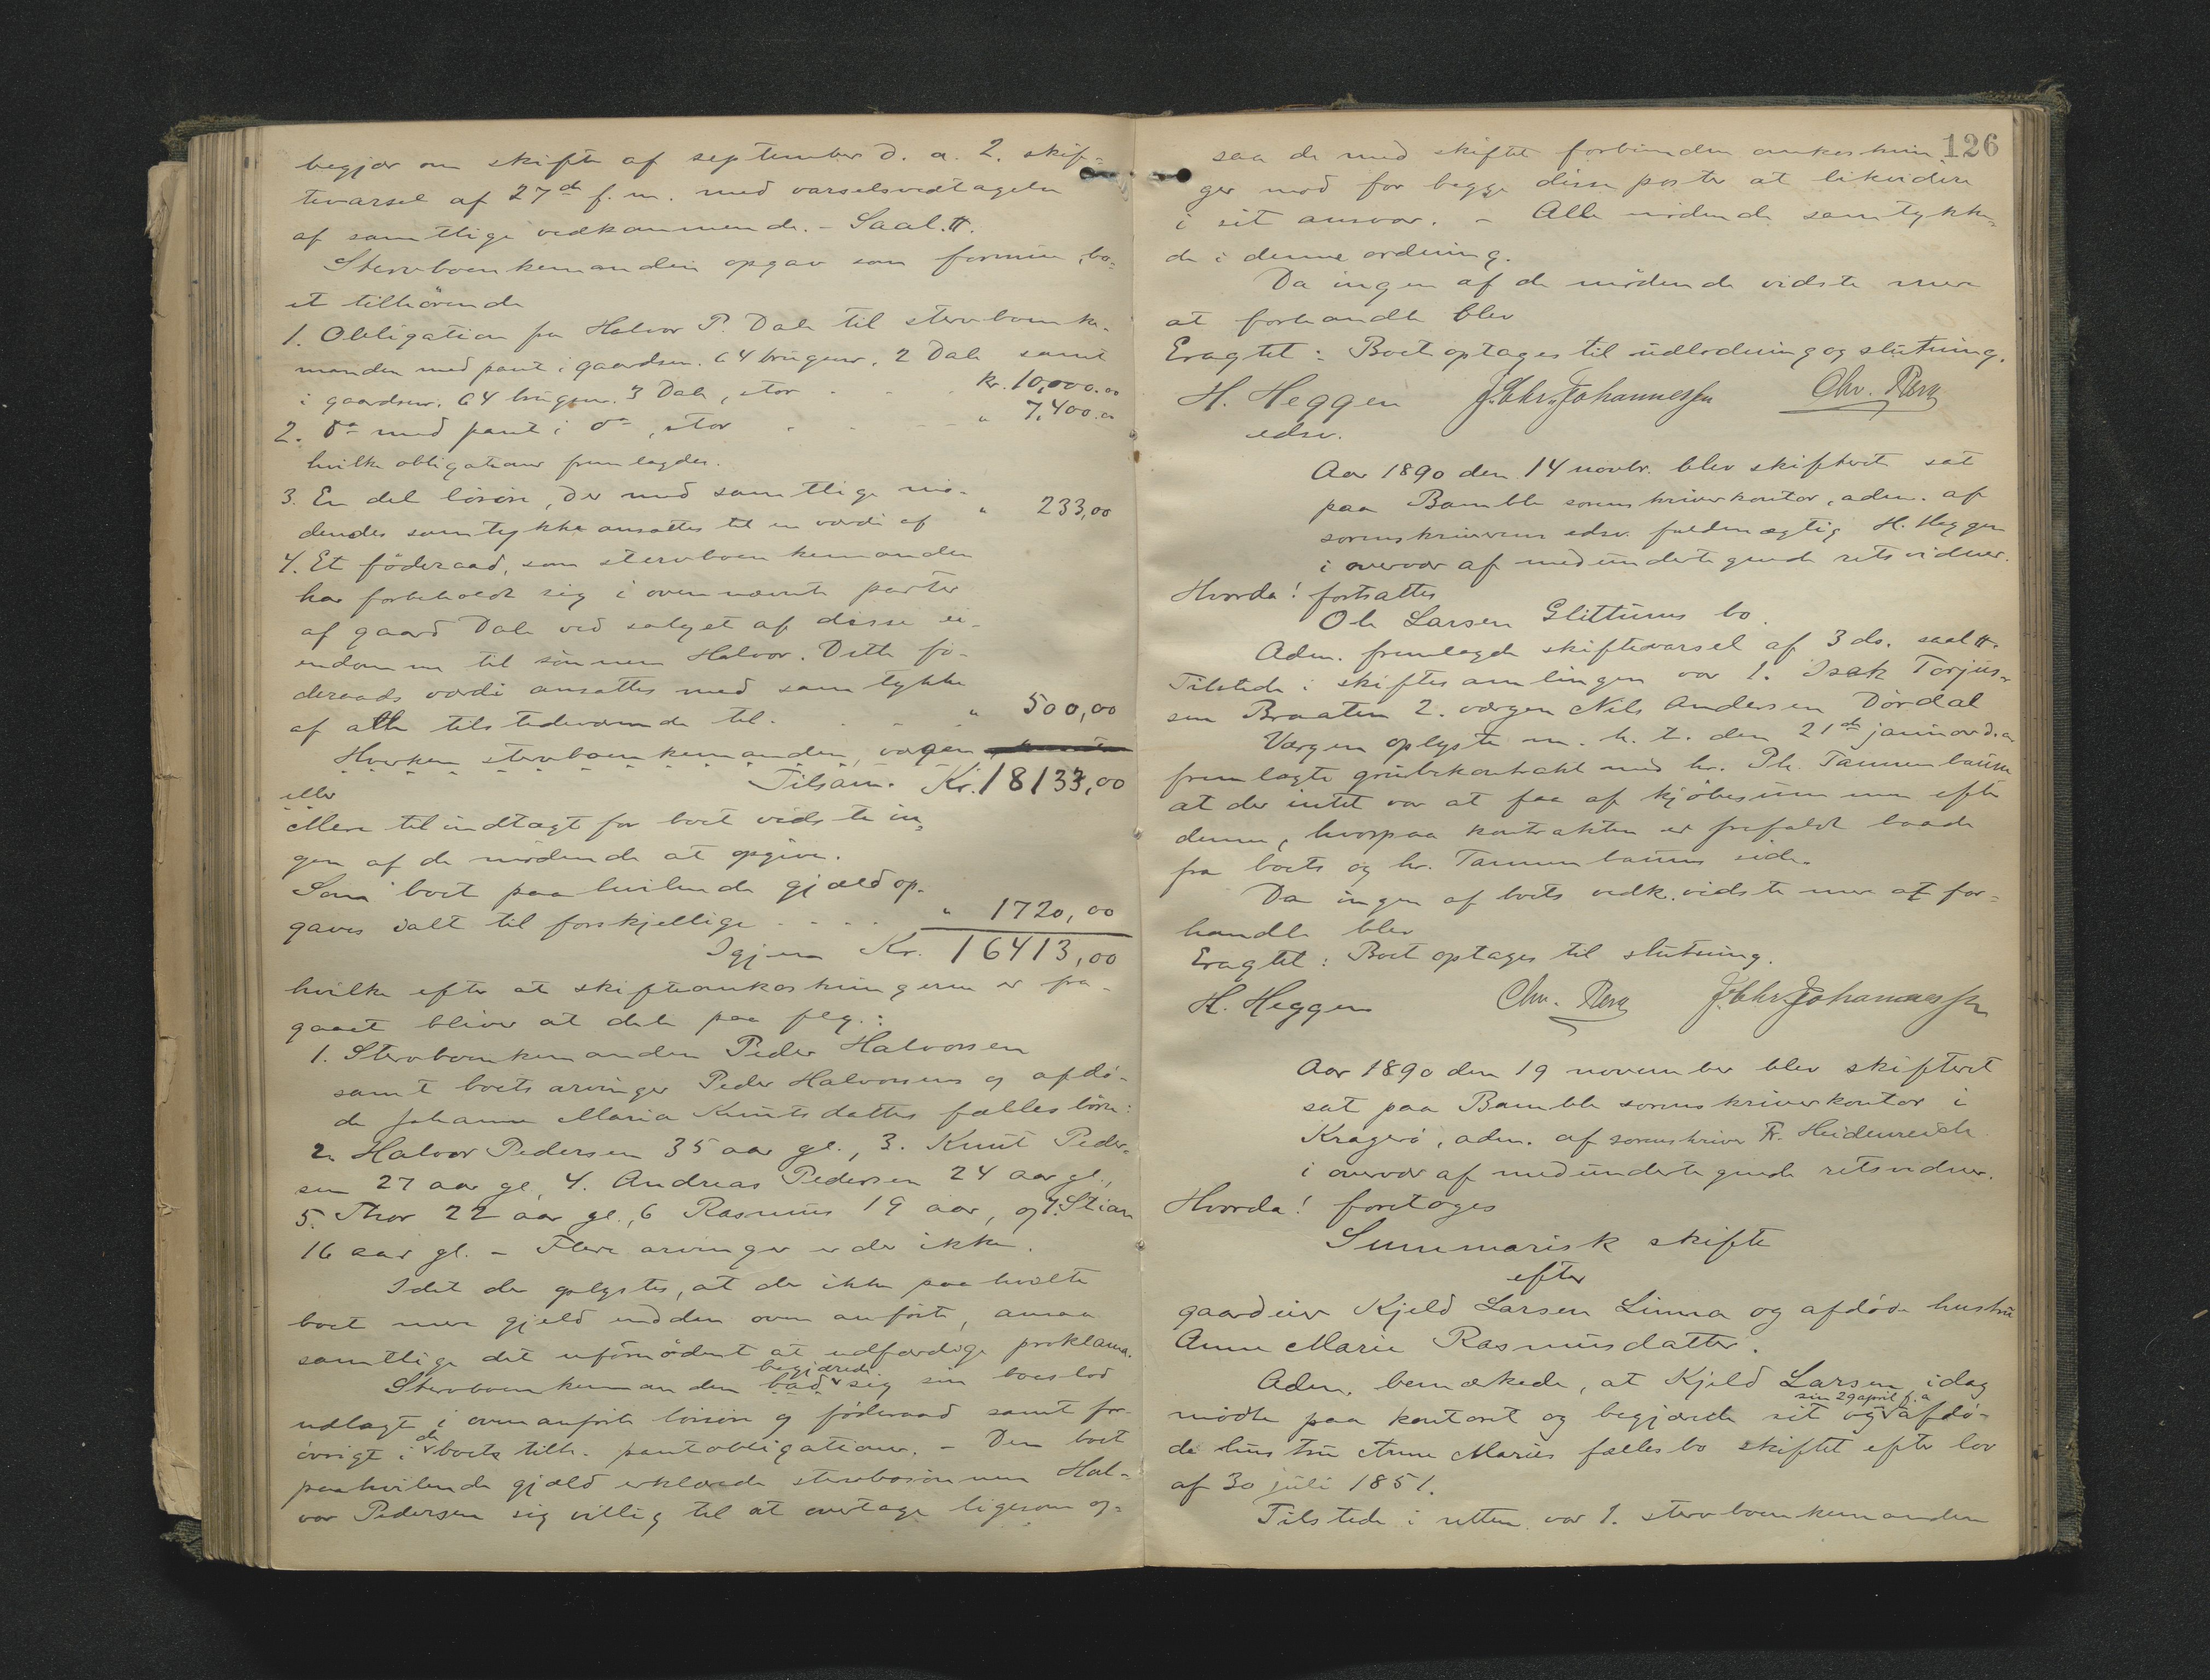 begjær om skifte af september d. a. 2. skif-
tevarsel af 27de f. m. med varselsvedtagelse
af samtlige vedkommende. - Saal. ##.
Stervboenkemanden opgav som formue, bo-
et tilhørende
1. Obligation fra Halvor P. Dale til stervboenke-
manden med pant i gaardsnr. 64 brugsnr. 2 Dale samt
i gaardsnr. 64 brugsnr. 3 Dale, stor . . . kr. 10,000.00
2. do med pant i do, stor . . . " 7,400.00
hvilke obligationer fremlagdes.
3. En del løsøre, der med samtlige mø-
dendes samtykke ansattes til en værdi af " 233,00
4. Et föderaad, som stervboenkemanden
har forbeholdt sig i ovennævnte parter
af gaard Dale ved salget af disse ei-
endomme til sönnen Halvor. Dette fö-
deraads værdi ansattes med samtykke
af alle tilstedeværende til . . . " 500,00
Hverken stervboenkemanden, værgen
Tilsam. Kr. 18133,00
eller
Mere til indtægt for boet vidste in-
gen af de mødende at opgive.
Som boet paahvilende gjæld op-
gaves ialt til forskjellige . . . " 1720,00
Igjen Kr. 16413,00
hvilke efter at skifteomkostningerne er fra-
gaaet bliver at dele paa flg.:
1. Stervboenkemanden Peder Halvorsen
samt boets arvinger Peder Halvorsens og afdö-
de Johanne Maria Knutsdatters fælles börn:
2. Halvor Pedersen 35 aar gl., 3. Knut Peder-
sen 27 aar gl, 4. Andreas Pedersen 24 aar gl.,
5. Thor 22 aar gl., 6 Rasmus 19 aar, og 7. Stian
16 aar gl. - Flere arvinger er der ikke.
Idet der oplystes, at der ikke paahvilte
boet mere gjeld end den ovenanførte, ansaa
samtlige det ufornødent at udfærdige proklama.
begjærede
Stervboenkemanden bad sig sin boeslod
udlagt i ovenanførte løsøre og føderaad samt for-
øvrigt i de boets tilh. pantobligationer. - Den boet
paahvilende gjæld erklærede stervbosønnen Hal-
vor Pedersen sig villig til at overtage ligesom og-
126
saa de med skiftet forbundne omkostnin-
ger mod for begge disse poster at likvidere
i sit ansvar. - Alle mødende samtykke-
de i denne ordning.
Da ingen af de mødende vidste mere
at forhandle blev
Eragtet: Boet optages til udlodning og slutning.
H. Heggen J. Chr. Johannessen Chr. Berg
edsv.
Aar 1890 den 14 novbr. blev skifteret sat
paa Bamble sorenskriverkontor, adm. af
sorenskriverens edsv. fuldmægtig H. Heggen
i overvær af medundertegnede retsvidner.
Hvorda! fortsattes
Ole Larsen Glittums bo.
Adm. fremlagde skiftevarsel af 3 ds. saal ##.
Tilstede i skiftesamlingen var 1. Isak Torjus-
sen Braaten 2. værgen Nils Andersen Dördal
Værgen oplyste m. h. t. den 21de januar d. a.
fremlagte grubekontrakt med hr. Ph. Tannenbaum
at der intet var at faa af kjøbesummen efter
denne, hvorpaa kontrakten er frafaldt baade
fra boets og hr. Tannenbaums side.
Da ingen af boets vedk. vidste mere at for-
handle blev
Eragtet: Boet optages til slutning.
H. Heggen Chr. Berg J. Chr. Johannessen
Aar 1890 den 19 november blev skifteret
sat paa Bamble sorenskriverkontor i
Kragerø, adm. af sorenskriver Fr. Heidenreich
i overvær af medundertegnede retsvidner.
Hvorda! foretoges
Summarisk skifte
efter
gaardeier Kjeld Larsen Linna og afdøde hustru
Anne Marie Rasmusdatter.
Adm. bemærkede, at Kjeld Larsen idag
sin 29 april f. a
mødte paa kontoret og begjærede sit og afdö-
de hustru Anne Maries fællesbo skiftet efter lov
af 30 juli 1851.
Tilstede i retten var 1. stervboenkemanden